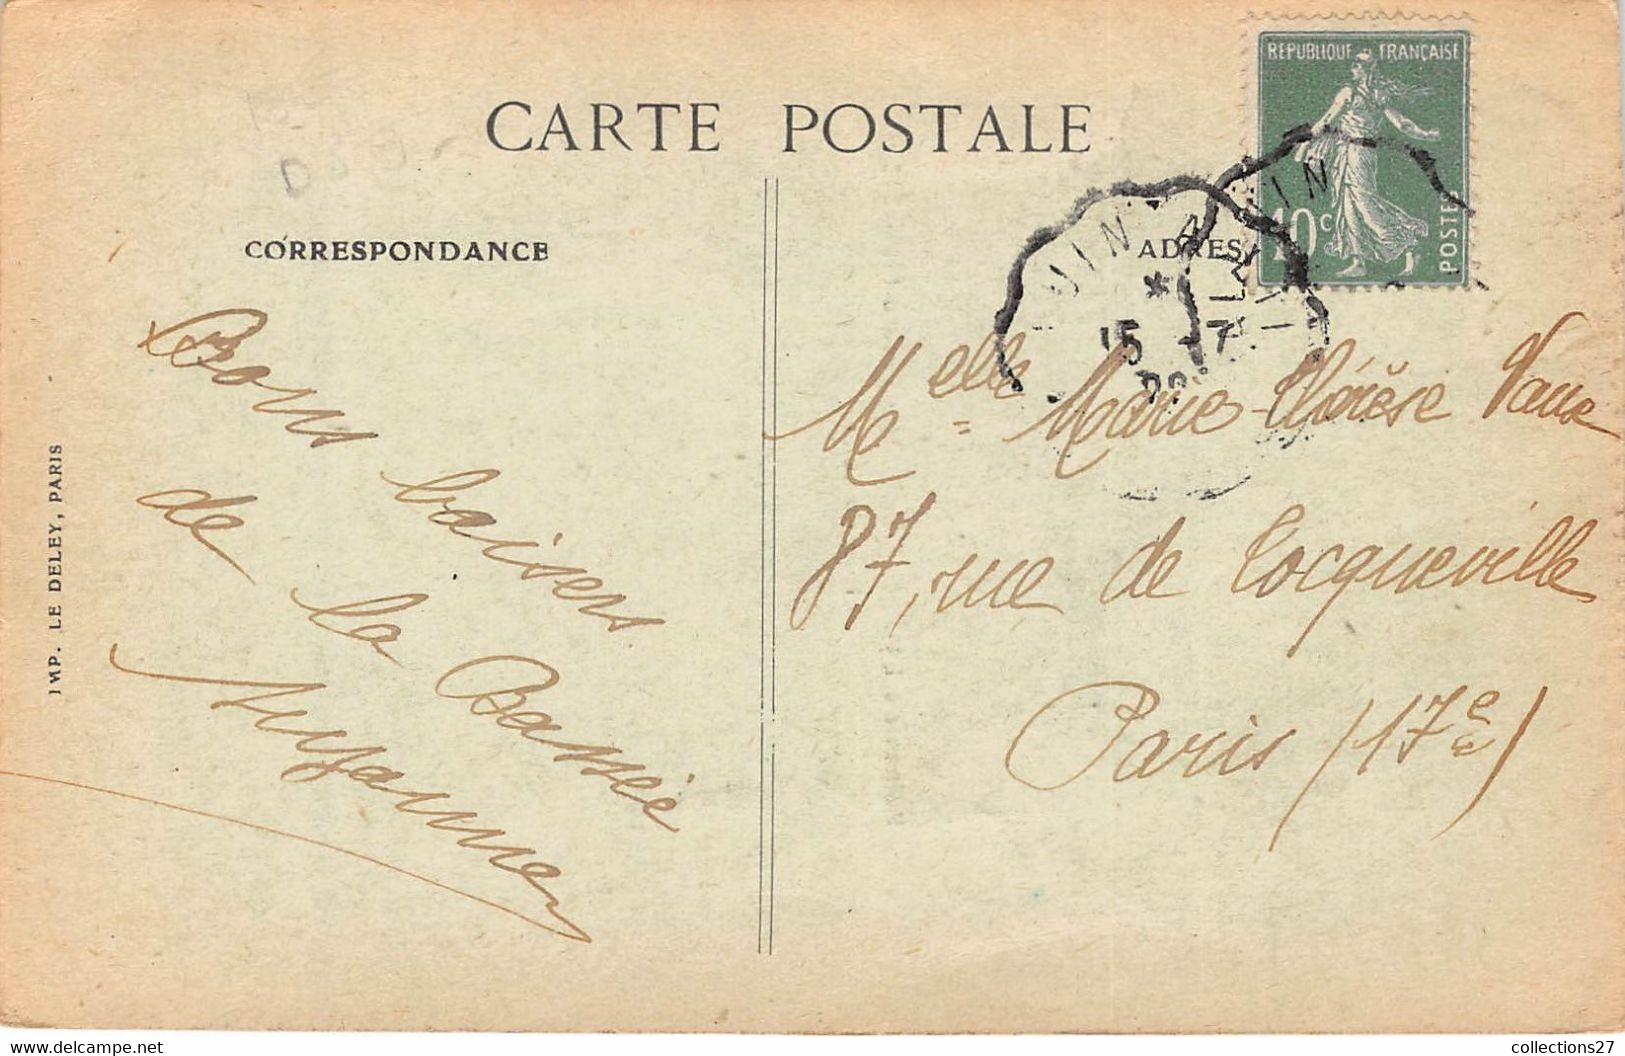 CARTE POSTALE
CORRESPONDANCE
Bons baisers
de la Bassée
Suzanne
IMP. LE DELEY, PARIS
REPUBLIQUE FRANÇAISE
10c
POSTES
ADRES
15 -7
Melle Marie-Thérèse Vaux
87, rue de Tocqueville
Paris (17e)
www.delcampe.net
collections27